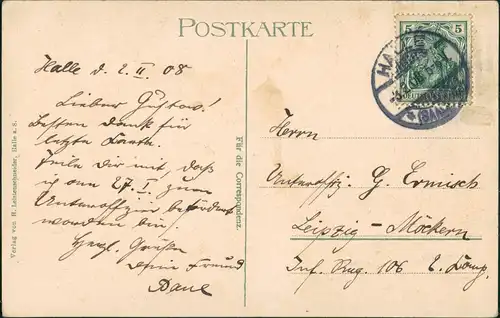 POSTKARTE
Halle d. 2. II. 08
Lieber Gustav!
Besten Dank für
letzte Karte.
Teile Dir mit, daß
ich am 27. I. zum
Unteroffizier befördert
worden bin.
Herzl. Grüße
Dein Freund
Verlag von H. Halle a. S.
Für die Correspondenz.
5 5
HALLE
(SAALE)
Herrn
Unteroffz. G. Ermisch
Leipzig-Möckern
Inf. Rug. 106 2. Komp.